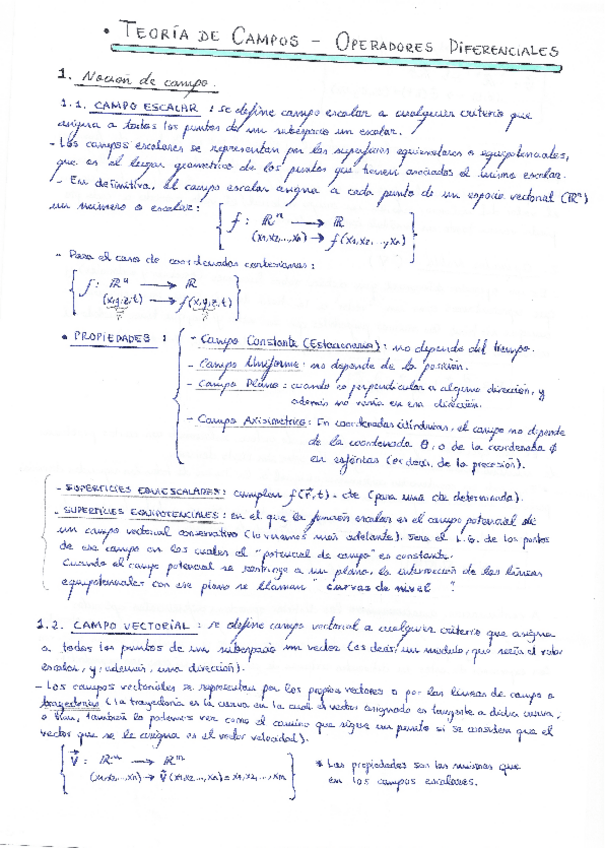 • TEORÍA DE CAMPOS - OPERADORES DIFERENCIALES
1. Noción de campo.
1.1. CAMPO ESCALAR : se define campo escalar a cualquier criterio que
asigna a todos los puntos de un subespacio un escalar.
- Los campos escalares se representan por las superficies equiescalares o equipotenciales,
que es el lugar geométrico de los puntos que tienen asociados el mismo escalar.
- En definitiva, el campo escalar asigna a cada punto de un espacio vectorial (ℝⁿ)
un número o escalar: { f : ℝⁿ → ℝ
(x₁,x₂,...,xₙ) → f(x₁,x₂,...,xₙ) }
- Para el caso de coordenadas cartesianas:
{ f : ℝ⁴ → ℝ
(x,y,z,t) → f(x,y,z,t) }
• PROPIEDADES :
- Campo Constante (Estacionario): no depende del tiempo.
- Campo Uniforme: no depende de la posición.
- Campo Plano: cuando es perpendicular a alguna dirección, y
además no varía en esa dirección.
- Campo Axisimétrico: En coordenadas cilíndricas, el campo no depende
de la coordenada θ, o de la coordenada ϕ
en esféricas (es decir, de la precesión).
- SUPERFICIES EQUIESCALARES: cumplen f(r⃗,t) = cte (para una cte determinada).
- SUPERFICIES EQUIPOTENCIALES: en el que la función escalar es el campo potencial de
un campo vectorial conservativo (lo veremos más adelante). Será el L.G. de los puntos
de ese campo en los cuales el "potencial de campo" es constante.
Cuando el campo potencial se restringe a un plano, la intersección de las líneas
equipotenciales con ese plano se llaman "curvas de nivel".
1.2. CAMPO VECTORIAL : se define campo vectorial a cualquier criterio que asigna
a todos los puntos de un subespacio un vector (es decir, un módulo, que sería el valor
escalar, y, además, una dirección).
- Los campos vectoriales se representan por los propios vectores o por las líneas de campo o
trayectorias (la trayectoria es la curva en la cual el vector asignado es tangente a dicha curva,
o bien, también lo podemos ver como el camino que sigue un punto si se considera que el
vector que se le asigna es el vector velocidad).
{ V⃗ : ℝᵐ → ℝᵐ
(x₁,x₂...,xₙ) → V⃗(x₁,x₂,...,xₙ) = x₁,x₂,...,xₘ }
* Las propiedades son las mismas que
en los campos escalares.